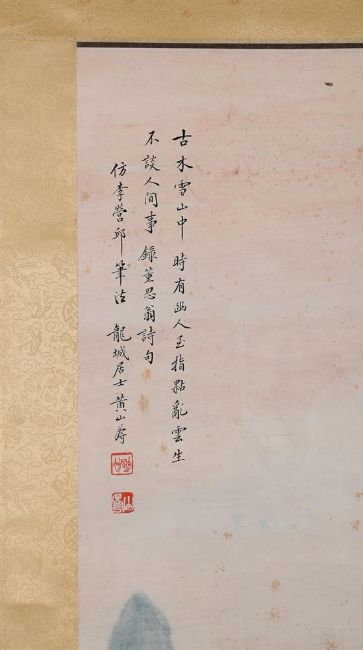 古木雪山中 時有幽人至 指點亂雲生
不談人间事 錄董思翁詩句
仿李營邱筆法 龍城居士黃山壽